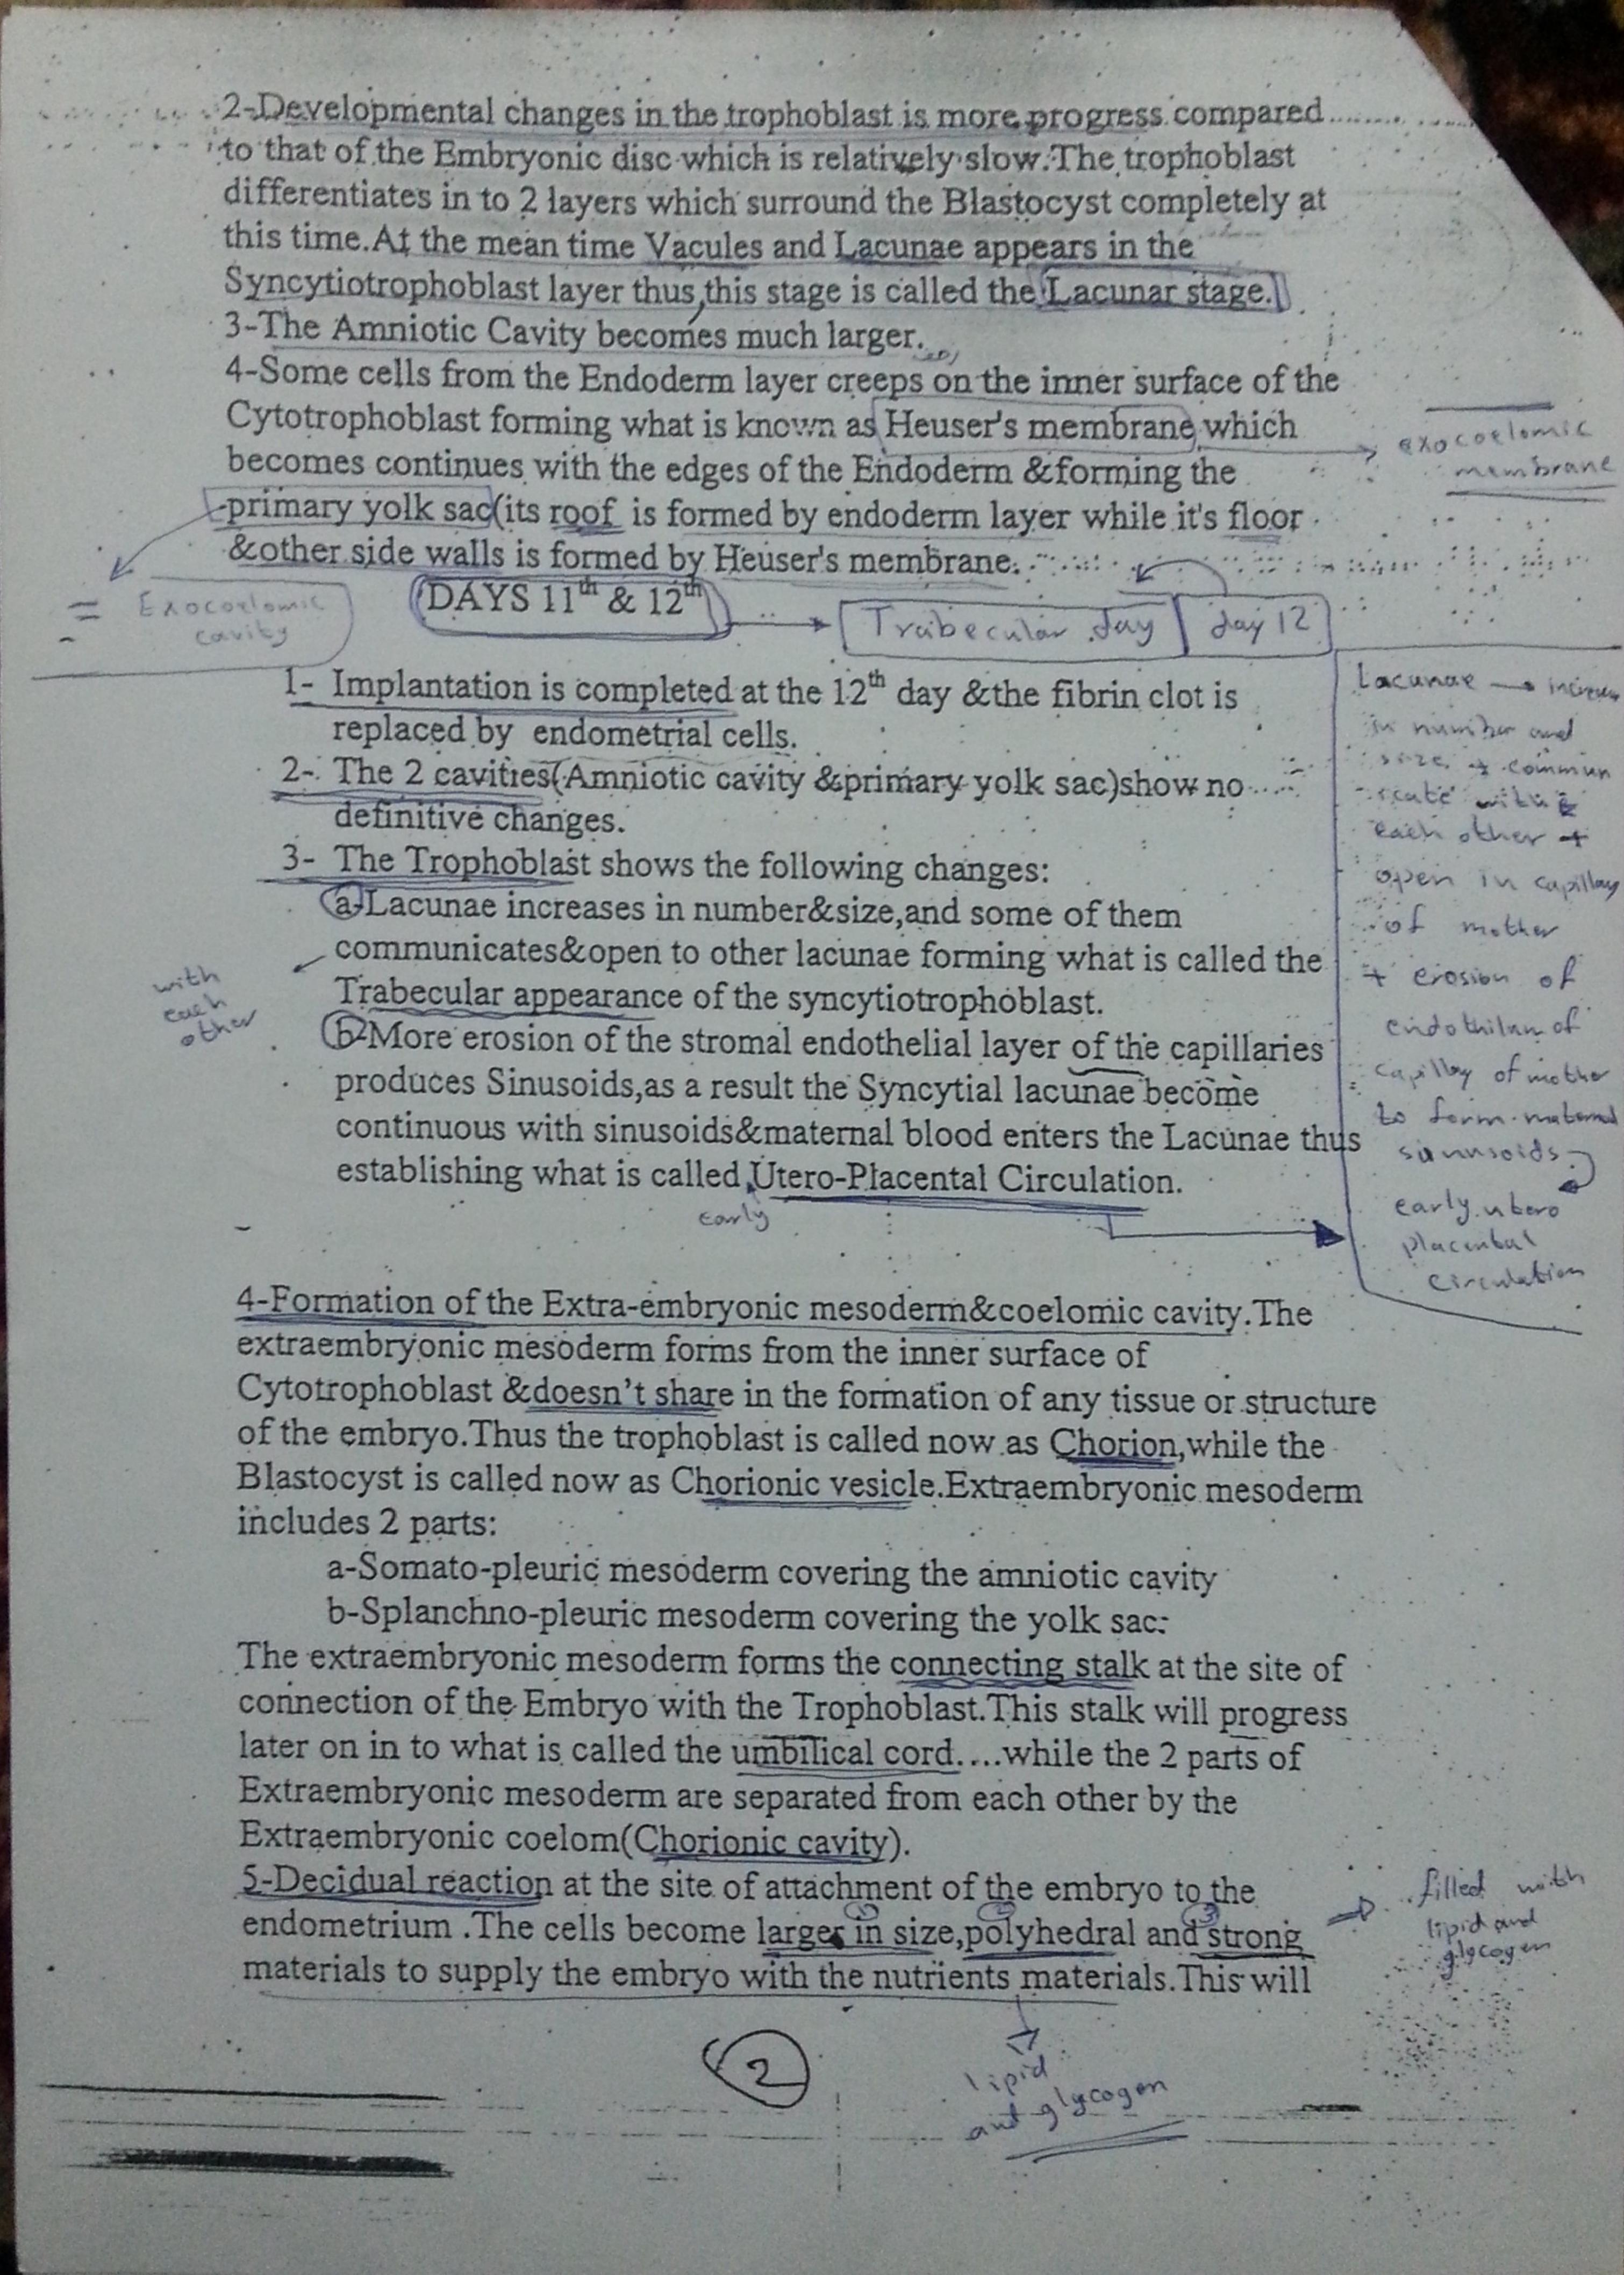 2-Developmental changes in the trophoblast is more progress compared
to that of the Embryonic disc which is relatively slow.The trophoblast
differentiates in to 2 layers which surround the Blastocyst completely at
this time.At the mean time Vacules and Lacunae appears in the
Syncytiotrophoblast layer thus,this stage is called the Lacunar stage.
3-The Amniotic Cavity becomes much larger.
4-Some cells from the Endoderm layer creeps on the inner surface of the
Cytotrophoblast forming what is known as Heuser's membrane which
exocoelomic
membrane
becomes continues with the edges of the Endoderm &forming the
primary yolk sac(its roof is formed by endoderm layer while it's floor
&other side walls is formed by Heuser's membrane.
= Exocoelomic
cavity
DAYS 11th & 12th
Trabecular day day 12
1- Implantation is completed at the 12th day &the fibrin clot is
replaced by endometrial cells.
2- The 2 cavities(Amniotic cavity &primary yolk sac)show no
definitive changes.
3- The Trophoblast shows the following changes:
a-Lacunae increases in number&size,and some of them
communicates&open to other lacunae forming what is called the
Trabecular appearance of the syncytiotrophoblast.
with
each
other
b-More erosion of the stromal endothelial layer of the capillaries
produces Sinusoids,as a result the Syncytial lacunae become
continuous with sinusoids&maternal blood enters the Lacunae thus
establishing what is called Utero-Placental Circulation.
early
Lacunae → increas
in number and
size + commun
icate with
each other +
open in capillay
of mother
+ erosion of
endothilum of
capillay of mother
to form maternal
sinusoids
early utero
placental
circulation
4-Formation of the Extra-embryonic mesoderm&coelomic cavity.The
extraembryonic mesoderm forms from the inner surface of
Cytotrophoblast &doesn't share in the formation of any tissue or structure
of the embryo.Thus the trophoblast is called now as Chorion,while the
Blastocyst is called now as Chorionic vesicle.Extraembryonic mesoderm
includes 2 parts:
a-Somato-pleuric mesoderm covering the amniotic cavity
b-Splanchno-pleuric mesoderm covering the yolk sac:
The extraembryonic mesoderm forms the connecting stalk at the site of
connection of the Embryo with the Trophoblast.This stalk will progress
later on in to what is called the umbilical cord....while the 2 parts of
Extraembryonic mesoderm are separated from each other by the
Extraembryonic coelom(Chorionic cavity).
5-Decidual reaction at the site of attachment of the embryo to the
endometrium .The cells become larger in size,polyhedral and strong
materials to supply the embryo with the nutrients materials.This will
filled with
lipid and
glycogen
lipid
and glycogen
2